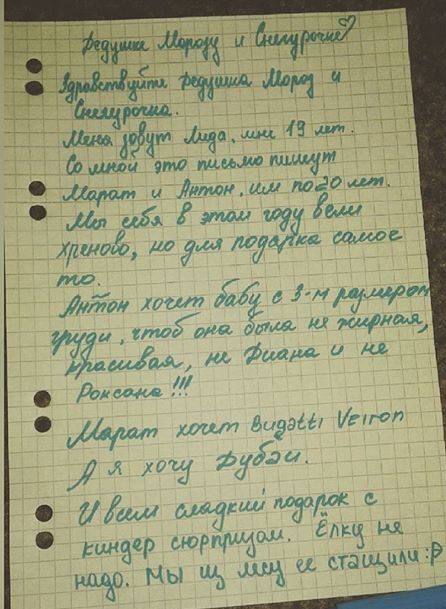 Дедушке Морозу и Снегурочке♡
Здравствуйте Дедушка Мороз и
Снегурочка.
Меня зовут Лида, мне 19 лет.
Со мной это письмо пишут
Марат и Антон, им по 20 лет.
Мы себя в этом году вели
хреново, но для подарка самое
то.
Антон хочет бабу с 3-м размером
груди, чтоб она была не жирная,
красивая, не Диана и не
Роксана!!!
Марат хочет Bugatti Veiron
А я хочу Дубаи.
И всем сладкий подарок с
киндер сюрпризом. Ёлку не
надо. Мы из лесу её стащили :D